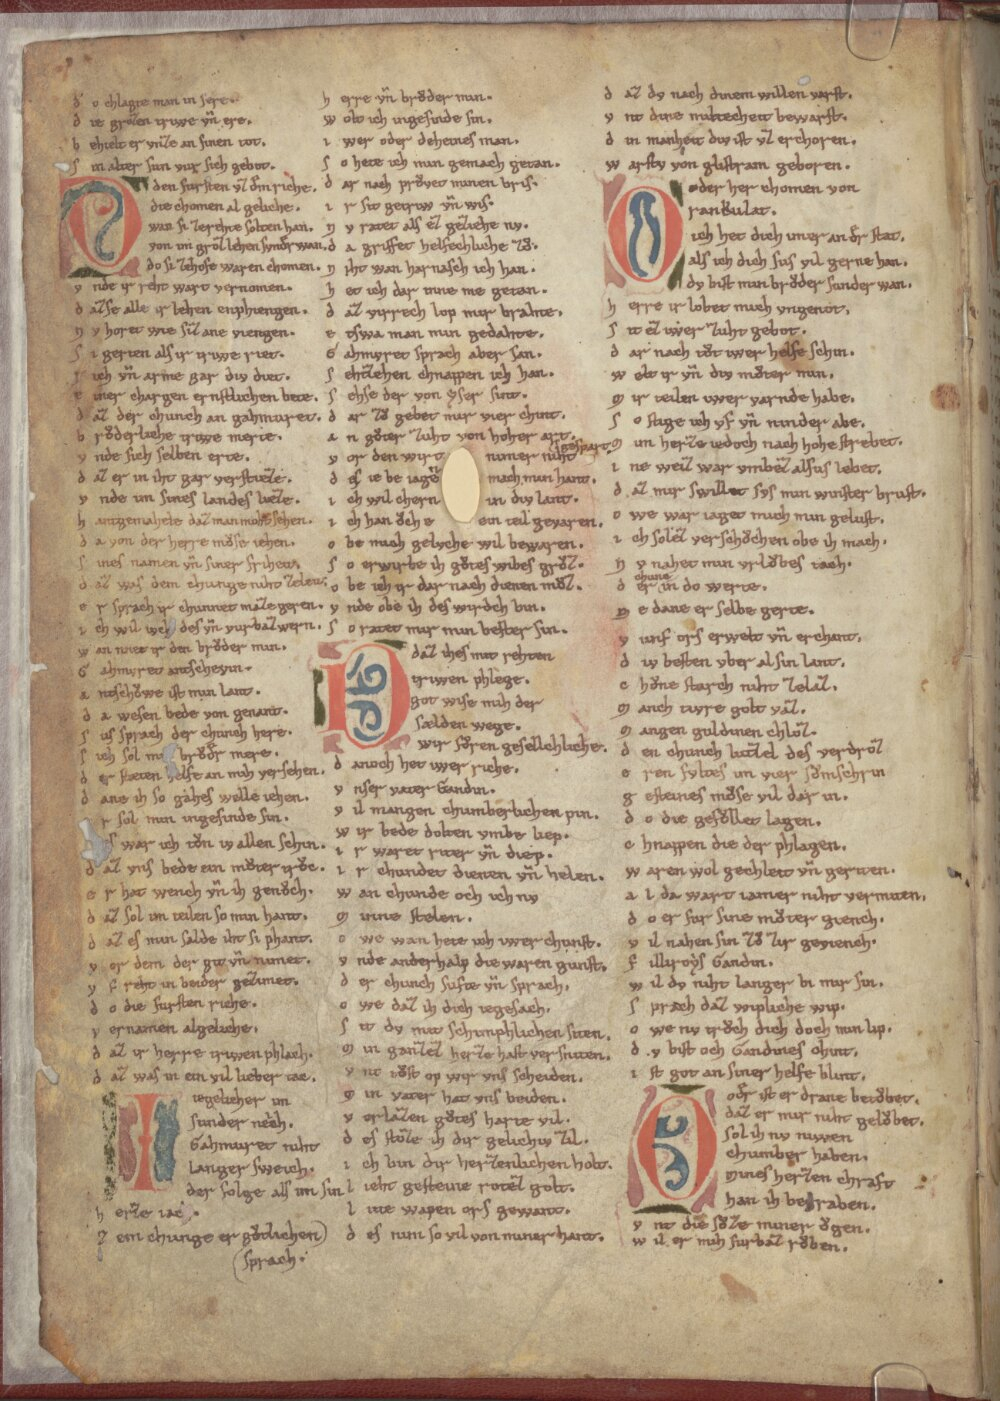 d o chlagte man in sere.
d ie grozen triwe vn ere.
b ehielt er vnze an sinen tot.
s in alter sun vur sich gebot.
den fursten vz dem riche.
die chomen al geliche.
wan si ze rehte solten han.
von im groz lehen sunder wan.
do si zehofe waren chomen.
v nde ir reht wart vernomen.
d az se alle ir lehen enphiengen.
n v horet wie siz ane viengen.
s i gerten als ir triwe riet.
r ich vn arme gar diu diet.
e iner chargen ernstlichen bete.
d az der chunch an gahmuret.
b ruderliche triwe merte.
v nde sich selben erte.
d az er in iht gar verstieze.
v nde im sines landes lieze.
h antgemahele daz man mohte sehen.
d a von der herre mose iehen.
s ines namen vn siner friheit.
d az was dem chunge niht ze leit.
e r sprach ir chunnet maze geren.
i ch wil iuch des vn vurbaz wern.
w an niet ir den bruder min.
G ahmuret antschevin.
a ntschowe ist min lant.
d a wesen bede von genant.
s us sprach der chunch here.
s ich sol min bruder mere.
d er stæten helfe an mich versehen.
d ane ih so gahes welle iehen.
r sol min ingesinde sin.
s war ich ton iv allen schin.
d az vns bede ein moter troc.
e r hat wench vn ih genoch.
d az sol im teilen so min hant.
d az es min salde iht si phant.
v or dem der git vn nimet.
v f reht in beider gezimet.
d o die fursten riche.
v ernamen algeliche.
d az ir herre triwen phlach.
d az was in ein vil lieber tac.
I iegelicher im
sunder neich.
Gahmuret niht
langer sweich.
der folge als im sin
h erze iac.
z ein chunge er gotlichen
sprach.
h erre vn bruder min.
w olt ich ingesinde sin.
i wer oder deheines man.
s o hete ich min gemach getan.
d ar nach pruvet minen bris.
i r sit getriw vn wis.
n v ratet als ez geziehe nv.
d a griffet helfechliche zo.
n iht wan harnasch ich han.
h et ich dar inne me getan.
d az virrech lop mir brahte.
e tswa man min gedahte.
G ahmuret sprach aber san.
s ehzehen chnappen ich han.
s ehse der von yser sint.
d ar zo gebet mir vier chint.
a n goter zuht von hoher art.
v or den wirt nimer niht gespart.
d es ie beiage mach min hant.
i ch wil chern in diu lant.
i ch han och e ein teil gevaren.
o be mich gelvche wil bewaren.
s o erwirbe ih gotes wibes groz.
o be ich ir dar nach dienen moz.
v nde obe ih des wirdch bin.
s o ratet mir min bester sin.
D daz ihes mit rehten
triwen phlege.
got wise mih der
sælden wege.
wir foren gesellechliche.
d anoch het iwer riche.
v nser vater Gandin.
v il mangen chumberlichen pin.
w ir bede dolten vmbe liep.
i r waret riter vn diep.
i r chundet dienen vn helen.
w an chunde och ich nv
m inne stelen.
o we wan hete ich iwer chunst.
v nde anderhalp die waren gunst.
d er chunch sufte vn sprach.
o we daz ih dich iegesach.
s it dv mit schimphlichen siten.
m in ganzez herze hast versniten.
v nt tost op wir vns scheiden.
m in vater hat vns beiden.
v erlazen gotes harte vil.
d es stoze ih dir gelichiv zil.
i ch bin dir herzenlichen holt.
l ieht gesteine rotez golt.
l ute wapen ors gewant.
d es nim so vil von miner hant.
d az dv nach dinem willen varst.
v nt dine miltecheit bewarst.
d in manheit diu ist vz erchoren.
w arstv von glistram geboren.
O oder her chomen von
rankulat.
ich het dich imer an der stat.
als ich dich sus vil gerne han.
dv bist min bruder sunder wan.
h erre ir lobet mich vngenot.
s it ez iwer zuht gebot.
d ar nach tot iwer helfe schin.
w elt ir vn diu moter min.
m ir teilen iwer varnde habe.
s o stige ich vf vn ninder abe.
m in herze iedoch nach hohe strebet.
i ne weiz war vmbez alsus lebet.
d az mir swillet sus min winster brust.
o we war iaget mich min gelust.
i ch solez verschochen obe ih mach.
n v nahet min vrlobes tach.
d er chunc in do werte.
m e dane er selbe gerte.
v unf ors erwelt vn erchant.
d iv besten vber al sin lant.
c hone starch niht zelaz.
m anch tivre golt vaz.
m angen guldinen chloz.
d en chunch luzel des verdroz
e ren fultes im vier somschrin
g esteines mose vil dar in.
d o die gefollet lagen.
c hnappen die der phlagen.
w aren wol gechleit vn geriten.
a l da wart iamer niht vermiten.
d o er fur sine moter giench.
v il nahen sin zo zir geviench.
f illiroys Gandin.
w il dv niht langer bi mir sin.
s prach daz wipliche wip.
o we nv troch dich doch min lip.
d v bist och Gandines chint.
i st got an siner helfe blint.
O oder ist er drane betobet.
daz er mir niht gelobet.
sol ih nv niwen
chumber haben.
mines herzen chraft
han ih begraben.
v nt die soze miner ogen.
w il er mih furbaz roben.